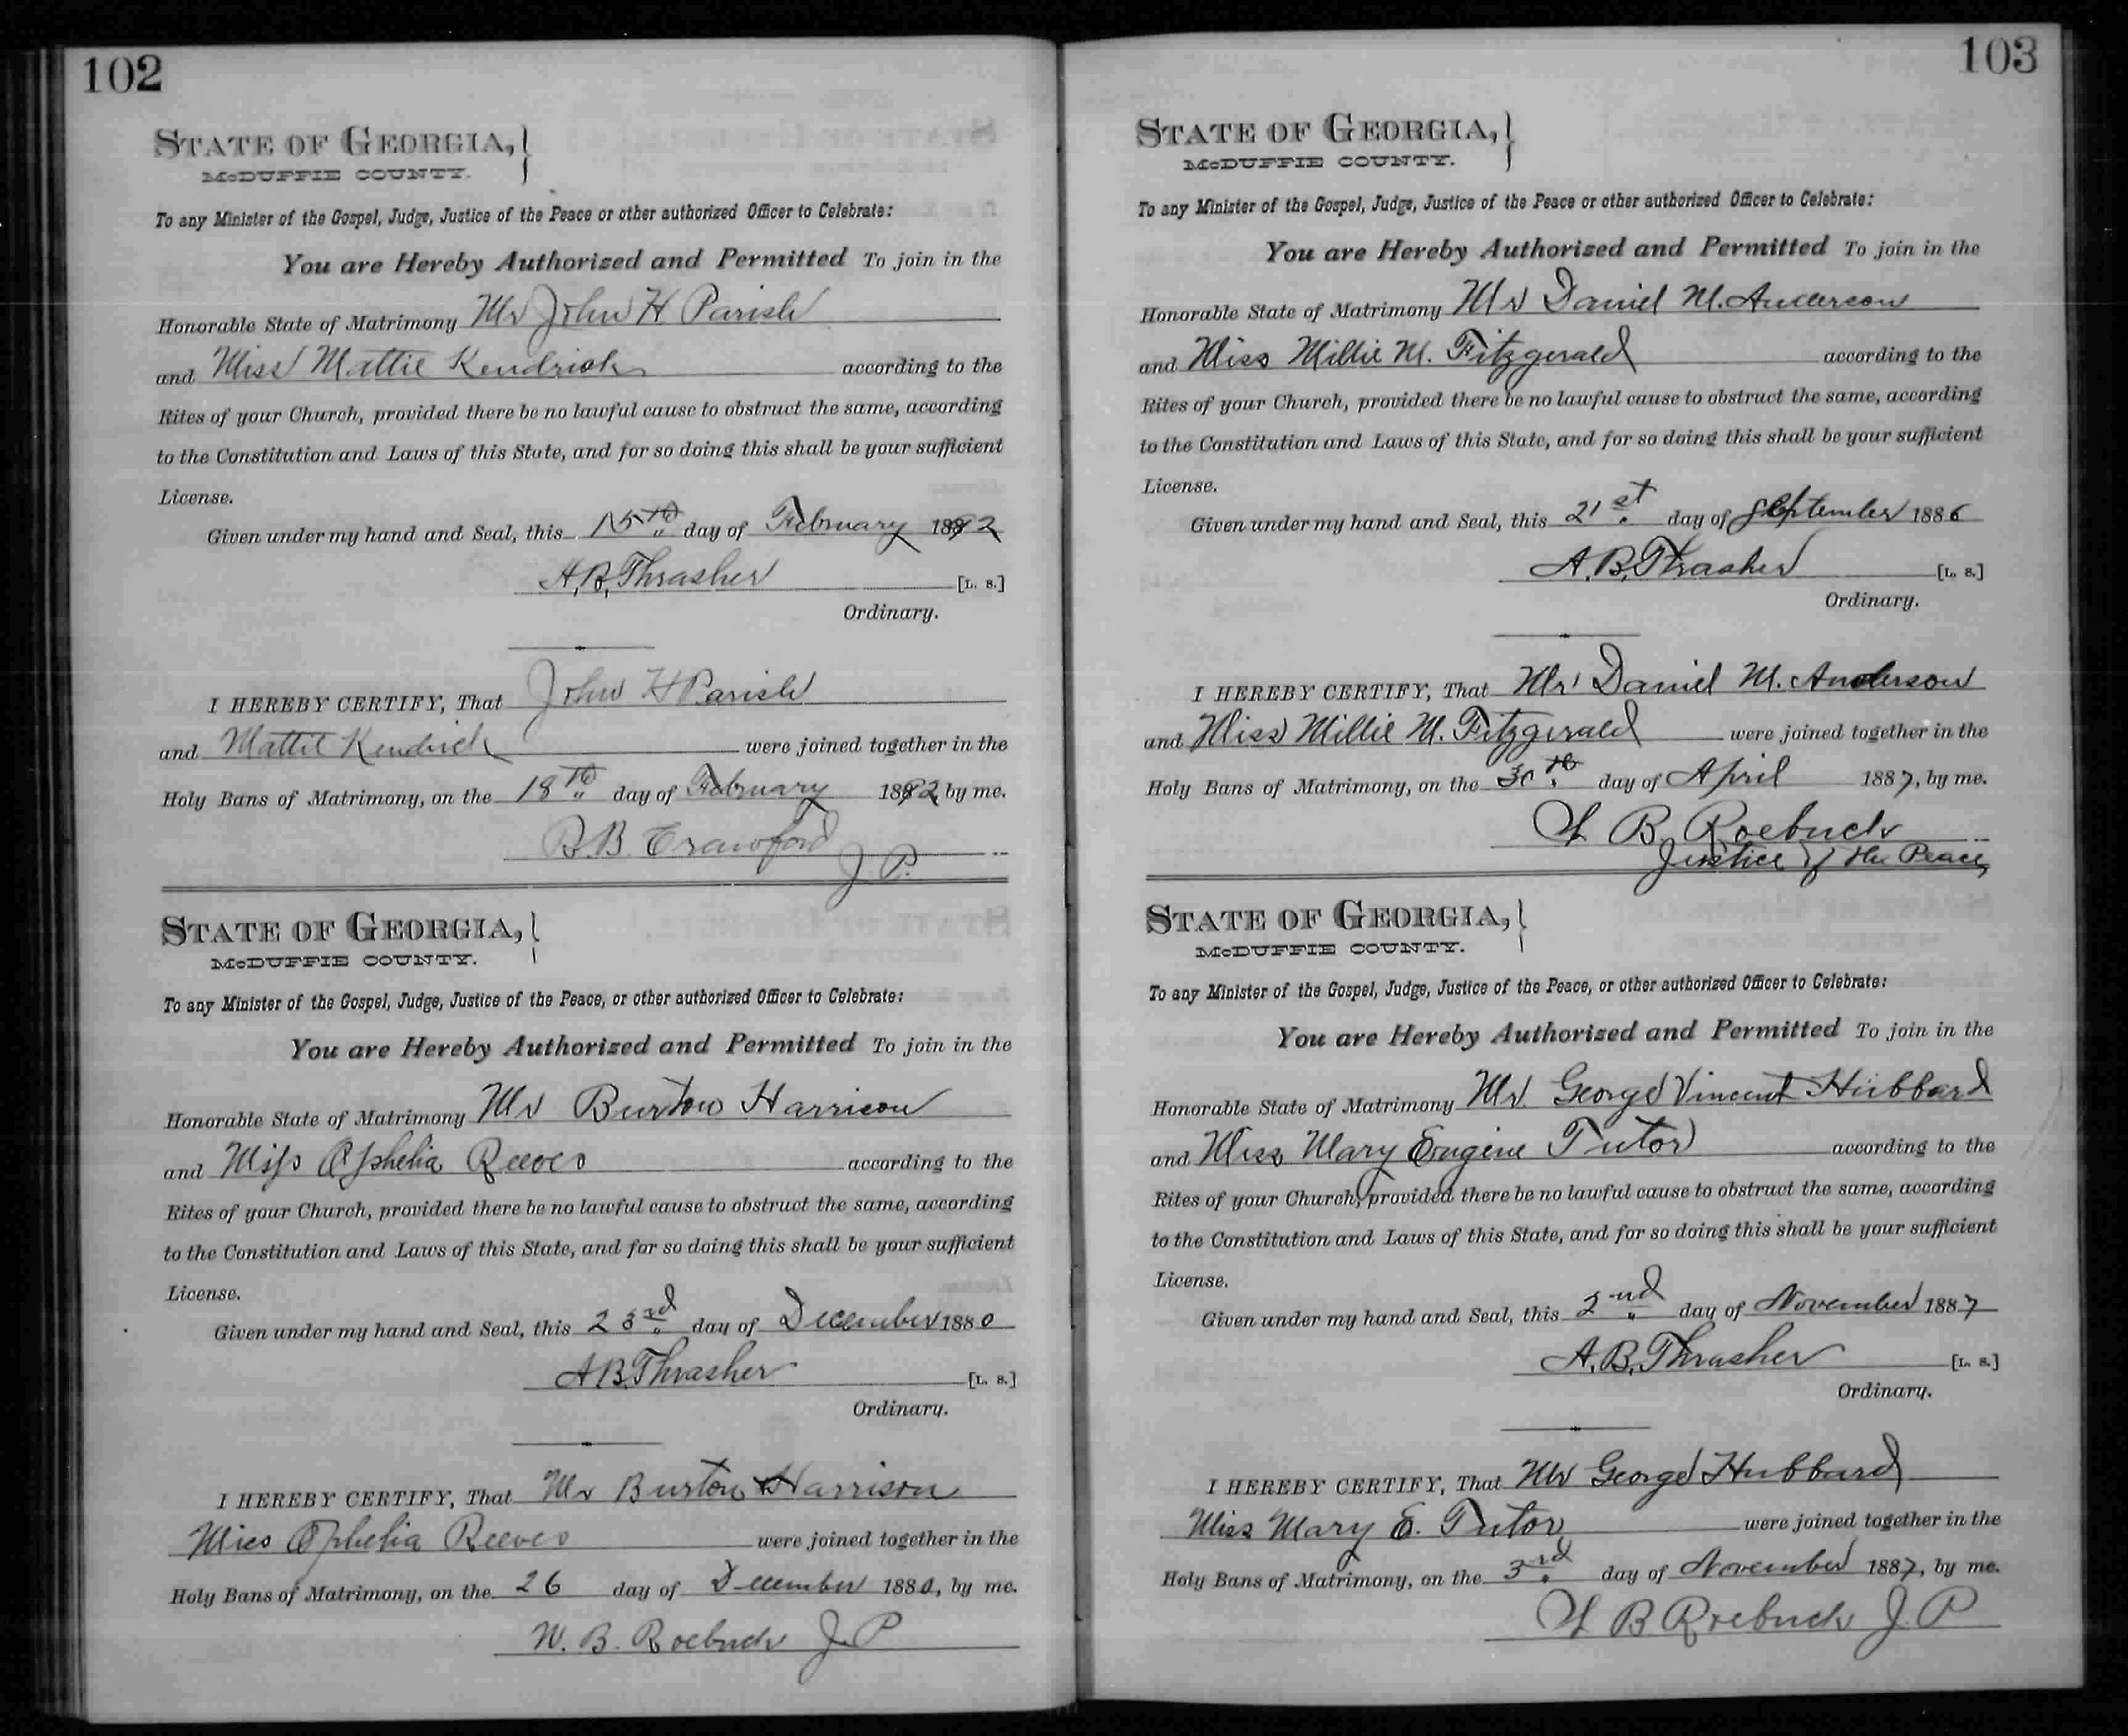 102
STATE OF GEORGIA,
McDUFFIE COUNTY.
To any Minister of the Gospel, Judge, Justice of the Peace or other authorized Officer to Celebrate:
You are Hereby Authorized and Permitted To join in the
Honorable State of Matrimony Mr John H Parish
and Miss Mattie Kendrick according to the
Rites of your Church, provided there be no lawful cause to obstruct the same, according
to the Constitution and Laws of this State, and for so doing this shall be your sufficient
License.
Given under my hand and Seal, this 15th day of February 1892
A,B,Thrasher [L. S.]
Ordinary.
I HEREBY CERTIFY, That John H Parish
and Mattie Kendrick were joined together in the
Holy Bans of Matrimony, on the 18th day of February 1892 by me.
B.B. Crawford
J P.
STATE OF GEORGIA,
McDUFFIE COUNTY.
To any Minister of the Gospel, Judge, Justice of the Peace, or other authorized Officer to Celebrate:
You are Hereby Authorized and Permitted To join in the
Honorable State of Matrimony Mr Burton Harrison
and Miss Ophelia Reeves according to the
Rites of your Church, provided there be no lawful cause to obstruct the same, according
to the Constitution and Laws of this State, and for so doing this shall be your sufficient
License.
Given under my hand and Seal, this 23rd day of December 1880
A B, Thrasher [L. S.]
Ordinary.
I HEREBY CERTIFY, That Mr Burton Harrison
Miss Ophelia Reeves were joined together in the
Holy Bans of Matrimony, on the 26 day of December 1880, by me.
W. B. Roebuck J. P
103
STATE OF GEORGIA,
McDUFFIE COUNTY.
To any Minister of the Gospel, Judge, Justice of the Peace or other authorized Officer to Celebrate:
You are Hereby Authorized and Permitted To join in the
Honorable State of Matrimony Mr Daniel M. Anderson
and Miss Millie M. Fitzgerald according to the
Rites of your Church, provided there be no lawful cause to obstruct the same, according
to the Constitution and Laws of this State, and for so doing this shall be your sufficient
License.
Given under my hand and Seal, this 21st day of September 1886
A.B,Thrasher [L. S.]
Ordinary.
I HEREBY CERTIFY, That Mr Daniel M. Anderson
and Miss Millie M. Fitzgerald were joined together in the
Holy Bans of Matrimony, on the 30th day of April 1887, by me.
B, Roebuck
Justice of the Peace
STATE OF GEORGIA,
McDUFFIE COUNTY.
To any Minister of the Gospel, Judge, Justice of the Peace, or other authorized Officer to Celebrate:
You are Hereby Authorized and Permitted To join in the
Honorable State of Matrimony Mr. George Vincent Hubbard
and Miss Mary Eugine Tutor according to the
Rites of your Church, provided there be no lawful cause to obstruct the same, according
to the Constitution and Laws of this State, and for so doing this shall be your sufficient
License.
Given under my hand and Seal, this 2nd day of November 1887
A.B,Thrasher [L. S.]
Ordinary.
I HEREBY CERTIFY, That Mr George Hubbard
Miss Mary E. Tutor were joined together in the
Holy Bans of Matrimony, on the 3rd day of November 1887, by me.
B Roebuck J. P